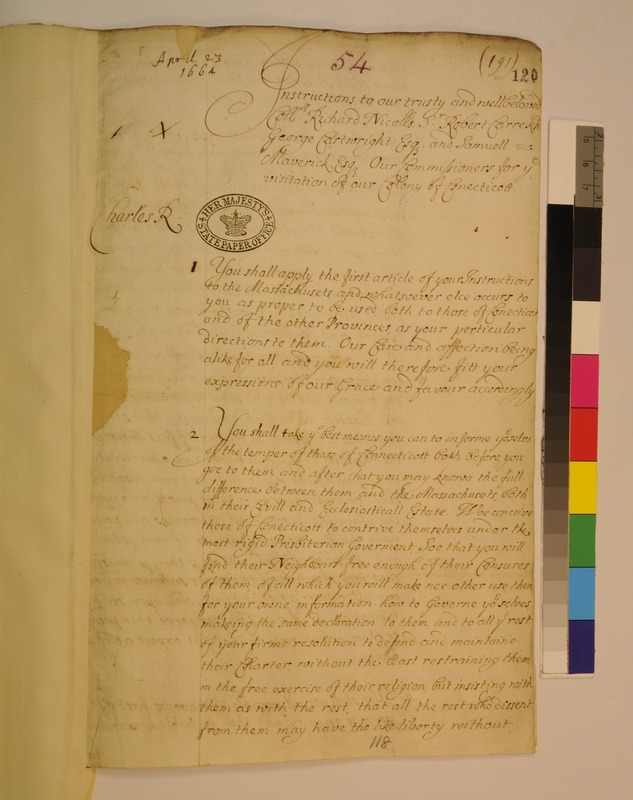 April 23
1664
54
(191)
120
Instructions to our trusty and wellbeloved
Collo.ll Richard Nicolls, Sr Robert Carre Kt
George Cartwright Esq, and Samuell =
Maverick Esq, Our Commissioners for ye
visitation of our Colony of Conecticott
Charles R
HER MAJESTY'S
STATE PAPER OFFICE
1 You shall apply the first article of your Instructions
to the Massachusets and whatsoever else occurs to
you as proper to be used both to those of Conecticot
and of the other Provinces, as your perticular
directions to them. Our Care and affection being
alike for all and you will therefore fitt your
expressions of our Grace and favour accordingly
2 You shall take ye best meanes you can to informe yorselves
of the temper of those of Connecticott both before you
goe to them and after, that you may knowe the full
difference between them and the Massachusets both
in their Civill and Ecclesiasticall Estate. Wee conceive
those of Conecticott to contrive themselves under the
most rigid Presbiterian Goverment Soe that you will
find their Neighbours free enough of their Censures
of them of all which you will make noe other use then
for your owne information how to Governe yorselves
makeing the same declaration to them and to all ye rest
of your firme resolution to defend and maintaine
their Charter without the least restraining them
in the free exercise of their religion, but insisting with
them as with the rest, that all the rest who dissent
from them may have the like liberty without
118